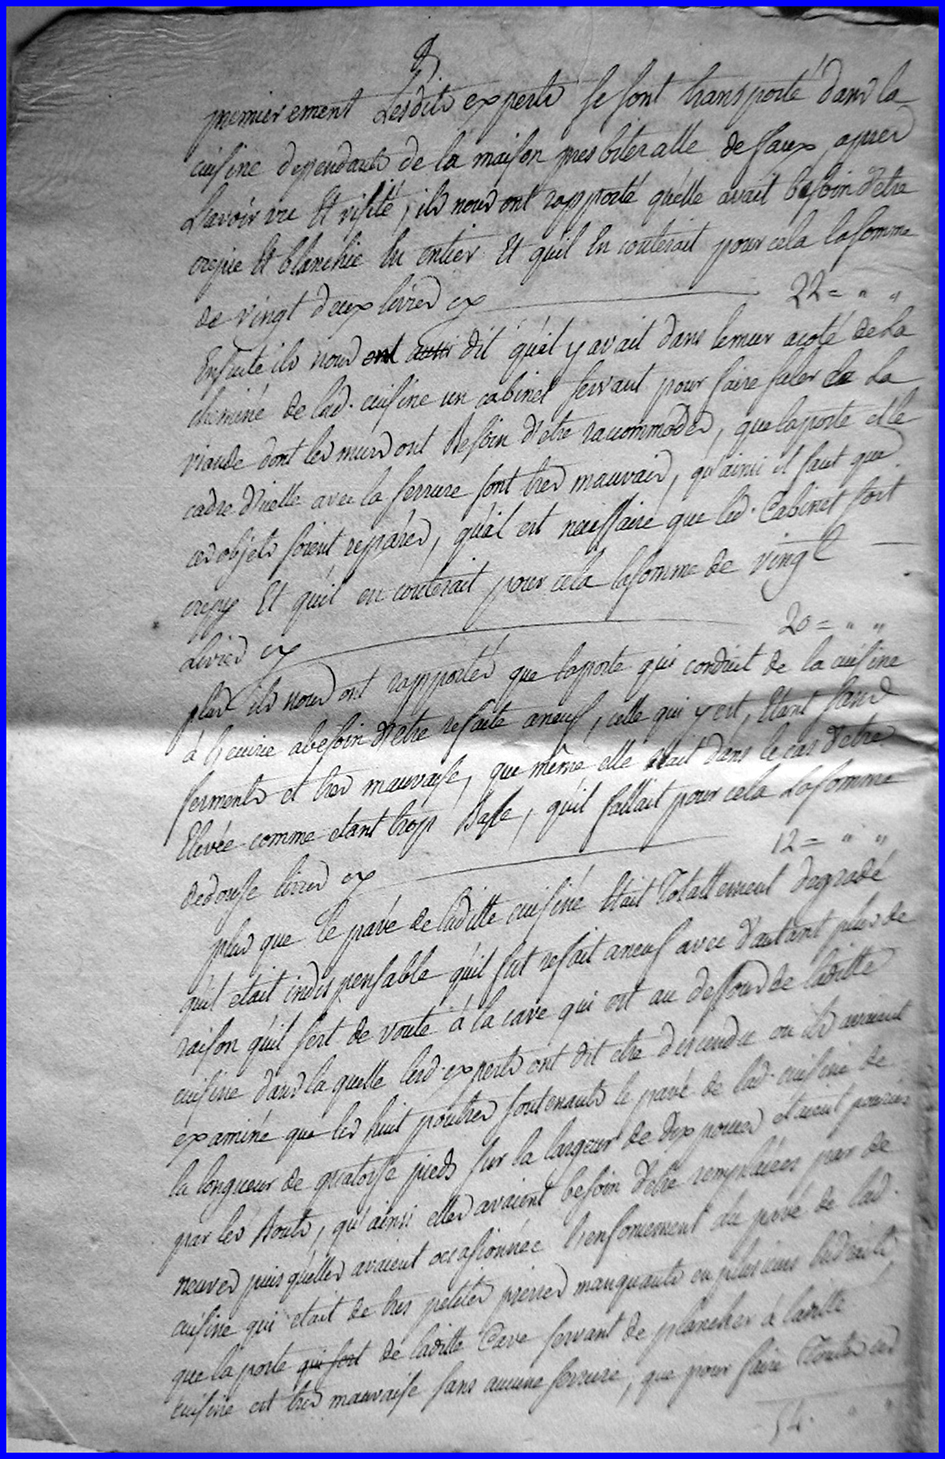 premierement Lesdits experts se sont transporté dans la
cuisine dependante de la maison presbiteralle de faux, apres
L'avoir vu Et visité, ils nous ont rapporté qu'elle avait besoin d'etre
crepie Et blanchie En entier Et qu'il En couterait pour cela la somme
de vingt deux livres cy 22 = " "
Ensuite ils nous ont aussi dit qu'il y avait dans le mur a coté de la
cheminé de lad. cuisine un cabinet servant pour faire saler de la
viande dont les murs ont Besoin d'etre raccommodés, que la porte et le
cadre d'icelle avec la serrure sont tres mauvais, qu'ainsi il faut que
ces objets soient reparés, qu'il est necessaire que led. Cabinet soit
crepy Et qu'il en couterait pour cela la somme de vingt
Livres cy 20 = " "
plus ils nous ont rapportés que la porte qui conduit de la cuisine
à l'ecurie a besoin d'etre refaite a neuf, celle qui y est, Etant sans
ferments et tres mauvaise, que même elle était dans le cas d'etre
Elevée comme etant trop Basse, qu'il fallait pour cela La somme
de douse livres cy 12 = " "
plus que le pavé de laditte cuisine Etait Totallement degradé
qu'il etait indispensable qu'il fut refait a neuf avec d'autant plus de
raison qu'il sert de voute à la cave qui est au dessous de laditte
cuisine dans la quelle lesd. experts ont dit etre descendu ou ils avaient
examiné que les huit poutres soutenants le pavé de lad. cuisine de
la longueur de quatorse pieds sur la largeur de dix pouces étaient pouries
par les Bouts, qu'ainsi elles avaient besoin d'etre remplacées par de
neuves puis qu'elles avaient occasionnée l'enfoncement du pavé de lad.
cuisine qui etait de tres petites pierres manquants en plusieurs endroits
que la porte qui sert de laditte Cave servant de plancher à laditte
cuisine est tres mauvaise sans aucune serrure, que pour faire Toutes ces
54. " "